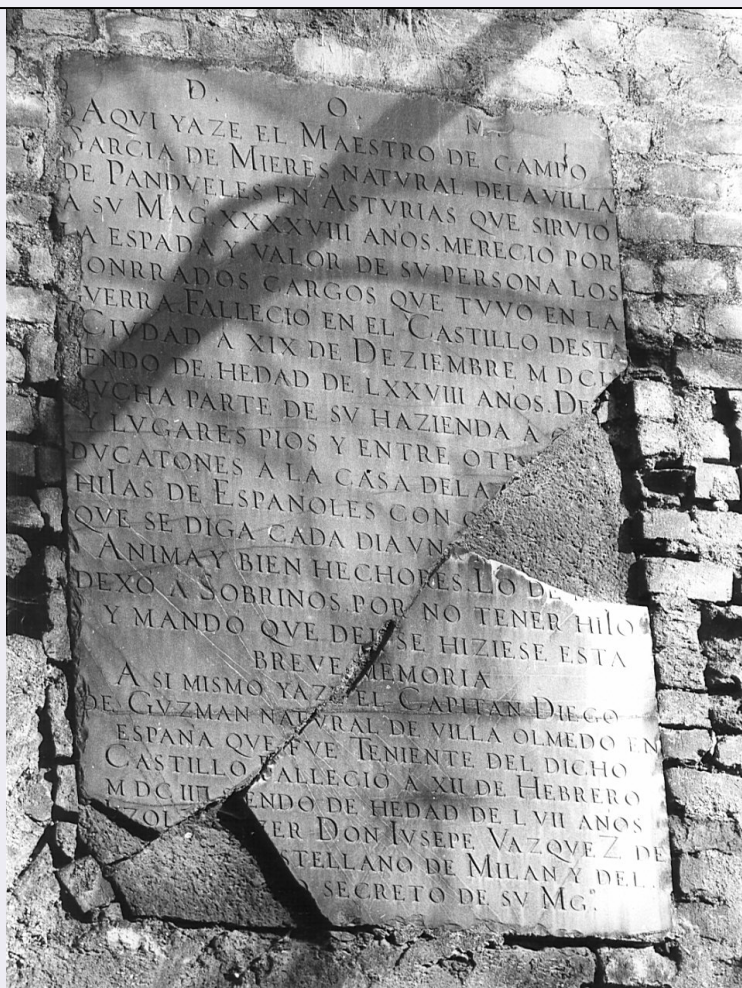 D. O. M.
AQVI YAZE EL MAESTRO DE CAMPO
GARCIA DE MIERES NATVRAL DELA VILLA
DE PANDVELES EN ASTVRIAS QVE SIRVIO
A SV MAG. XXXXVIII ANOS. MERECIO POR
LA ESPADA Y VALOR DE SV PERSONA LOS
ONRRADOS CARGOS QVE TVVO EN LA
GVERRA. FALLECIO EN EL CASTILLO DESTA
CIVDAD A XIX DE DEZIEMBRE MDCI
IENDO DE HEDAD DE LXXVIII ANOS. DE
MVCHA PARTE DE SV HAZIENDA A
Y LVGARES PIOS Y ENTRE
DVCATONES A LA CASA DELA
HIIAS DE ESPANOLES CON
QVE SE DIGA CADA DIA VN
ANIMA Y BIEN HECHORES. LO DE
DEXO A SOBRINOS. POR NO TENER HIIO
Y MANDO QVE DEL SE HIZIESE ESTA
BREVE MEMORIA
A SI MISMO YAZE EL CAPITAN DIEGO
DE GVZMAN NATVRAL DE VILLA OLMEDO EN
ESPANA QVE FVE TENIENTE DEL DICHO
CASTILLO FALLECIO A XII DE HEBRERO
MDCIII ENDO DE HEDAD DE LVII ANOS
ER DON IVSEPE VAZQVEZ DE
STELLANO DE MILAN Y DEL
SECRETO DE SV MG.